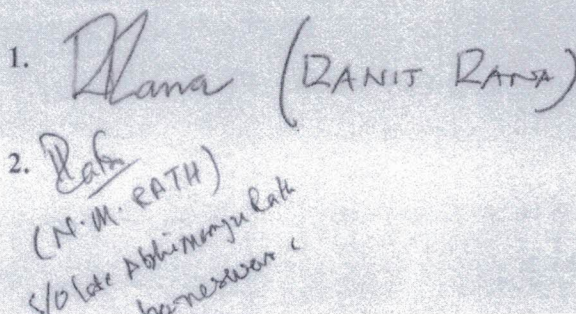 1. RRana (RANIT RANA)
2. Rath
(N.M. RATH)
S/o late Abhimanyu Rath
baneswar